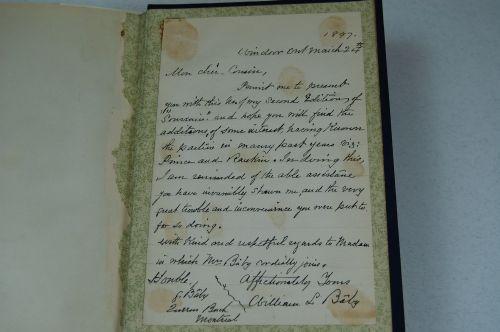 1897.
Windsor Ont March 24th
Mon cher Cousin,
Permit me to present
you with this of my Second Edition of
"Souvenirs" and hope you will find the
additions of some interest having known
the parties in many past years viz:
Prince and Rankin. In doing this,
I am reminded of the able assistance
you have invariably shown me and the very
great trouble and inconvenience you were put to
for so doing.
With kind and respectful regards to Madam
in which Mrs Bâby cordially joins.
Honble. Affectionately Yours
G. Bâby William L Bâby
Queens Bench
Montreal